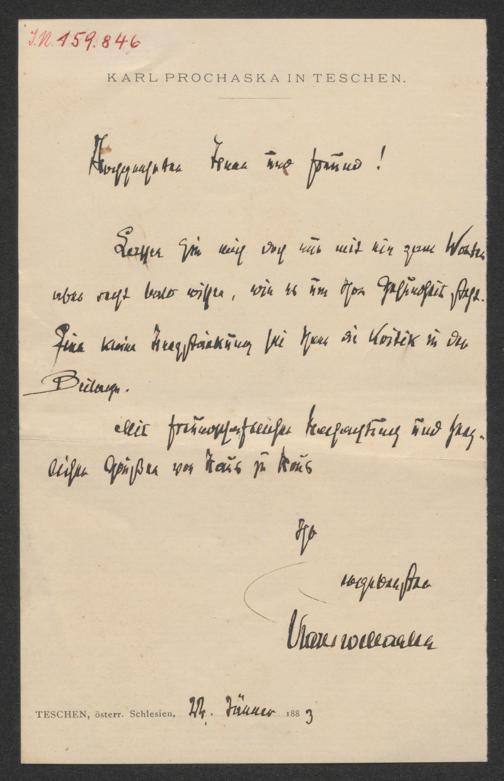 I.N. 159.846
KARL PROCHASKA IN TESCHEN.
Hochgeehrter Herr und Freund!
Lassen Sie mich doch nur mit ein paar Worten
aber recht bald wissen, wie es um Ihre Gesundheit steht.
Eine kleine Herzstärkung sei Ihnen die Kritik in der
Beilage.
Mit freundschaftlicher Hochachtung und herz-
lichen Grüßen von Haus zu Haus
Ihr
ergebenster
TESCHEN, österr. Schlesien, 24. Jänner 1883